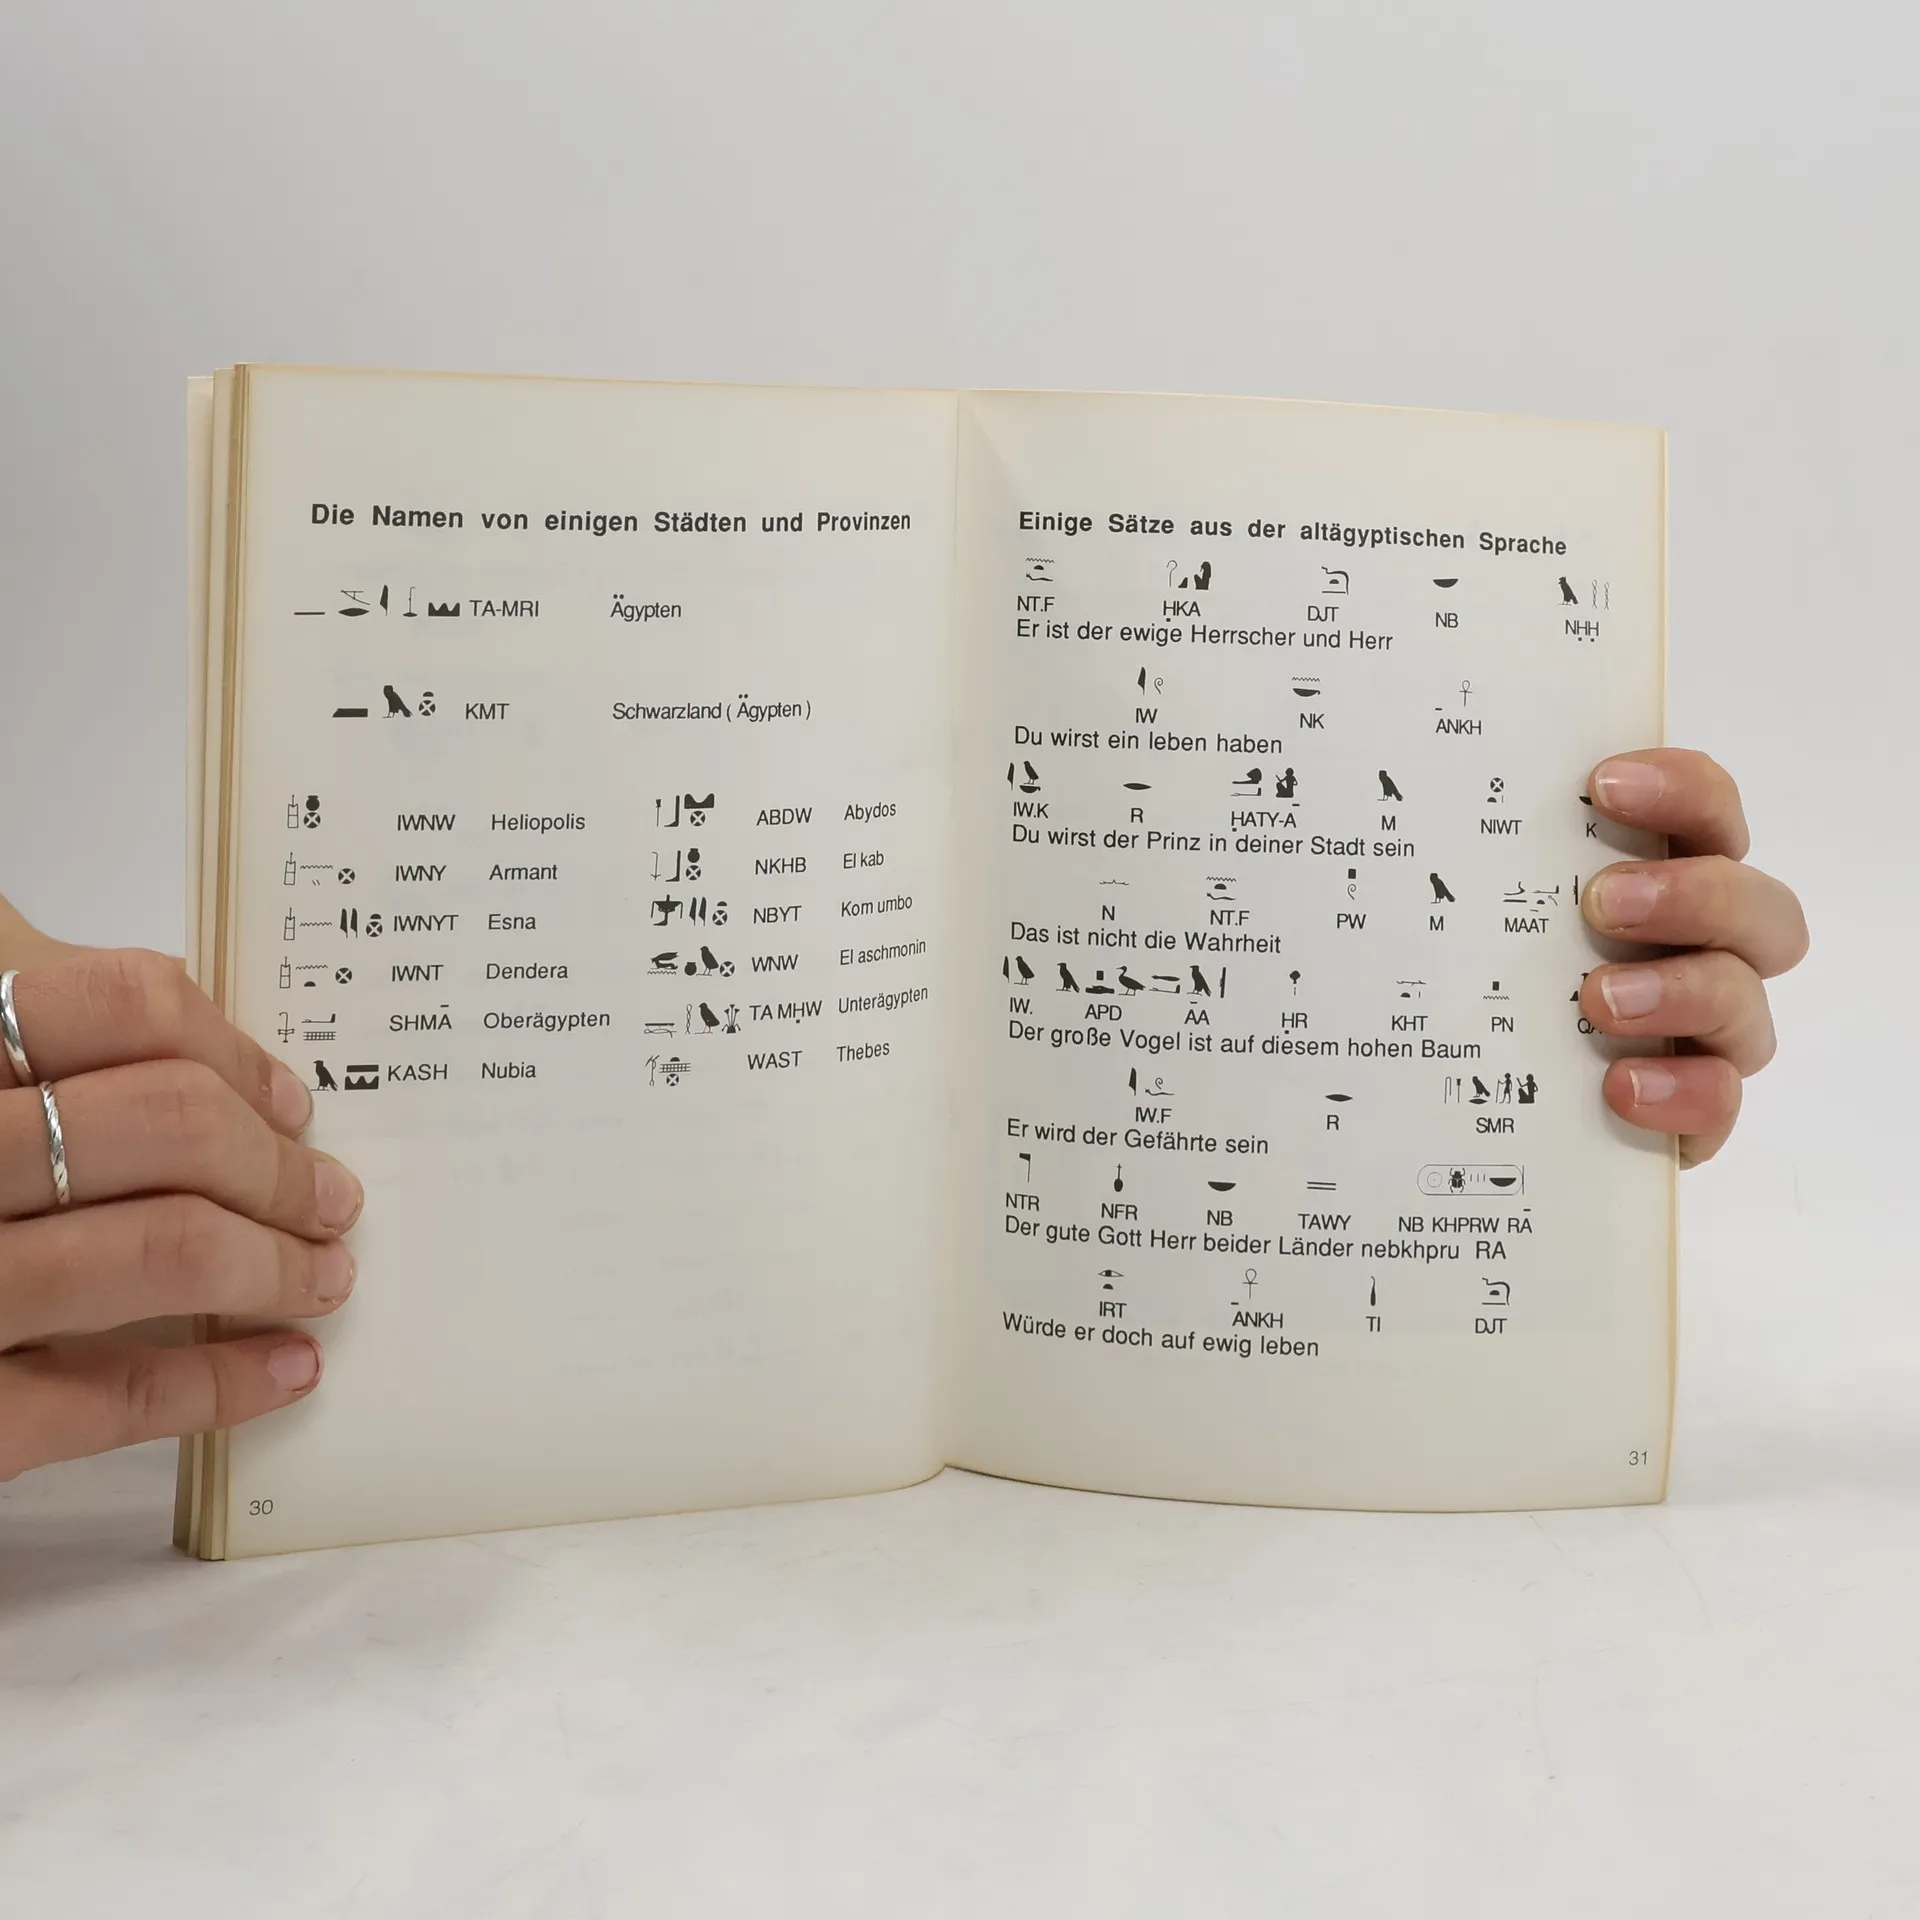 Die Namen von einigen Städten und Provinzen
TA-MRI Ägypten
KMT Schwarzland ( Ägypten )
IWNW Heliopolis
IWNY Armant
IWNYT Esna
IWNT Dendera
SHMĀ Oberägypten
KASH Nubia
ABDW Abydos
NKHB El kab
NBYT Kom umbo
WNW El aschmonin
TA MḤW Unterägypten
WAST Thebes
30
Einige Sätze aus der altägyptischen Sprache
NT.F ḤKA DJT NB NḤḤ
Er ist der ewige Herrscher und Herr
IW NK ĀNKH
Du wirst ein leben haben
IW.K R ḤATY-Ā M NIWT K
Du wirst der Prinz in deiner Stadt sein
N NT.F PW M MAĀT
Das ist nicht die Wahrheit
IW. APD ĀA ḤR KHT PN
Der große Vogel ist auf diesem hohen Baum
IW.F R SMR
Er wird der Gefährte sein
NTR NFR NB TAWY NB KHPRW RĀ
Der gute Gott Herr beider Länder nebkhpru RA
IRT ĀNKH TI DJT
Würde er doch auf ewig leben
31